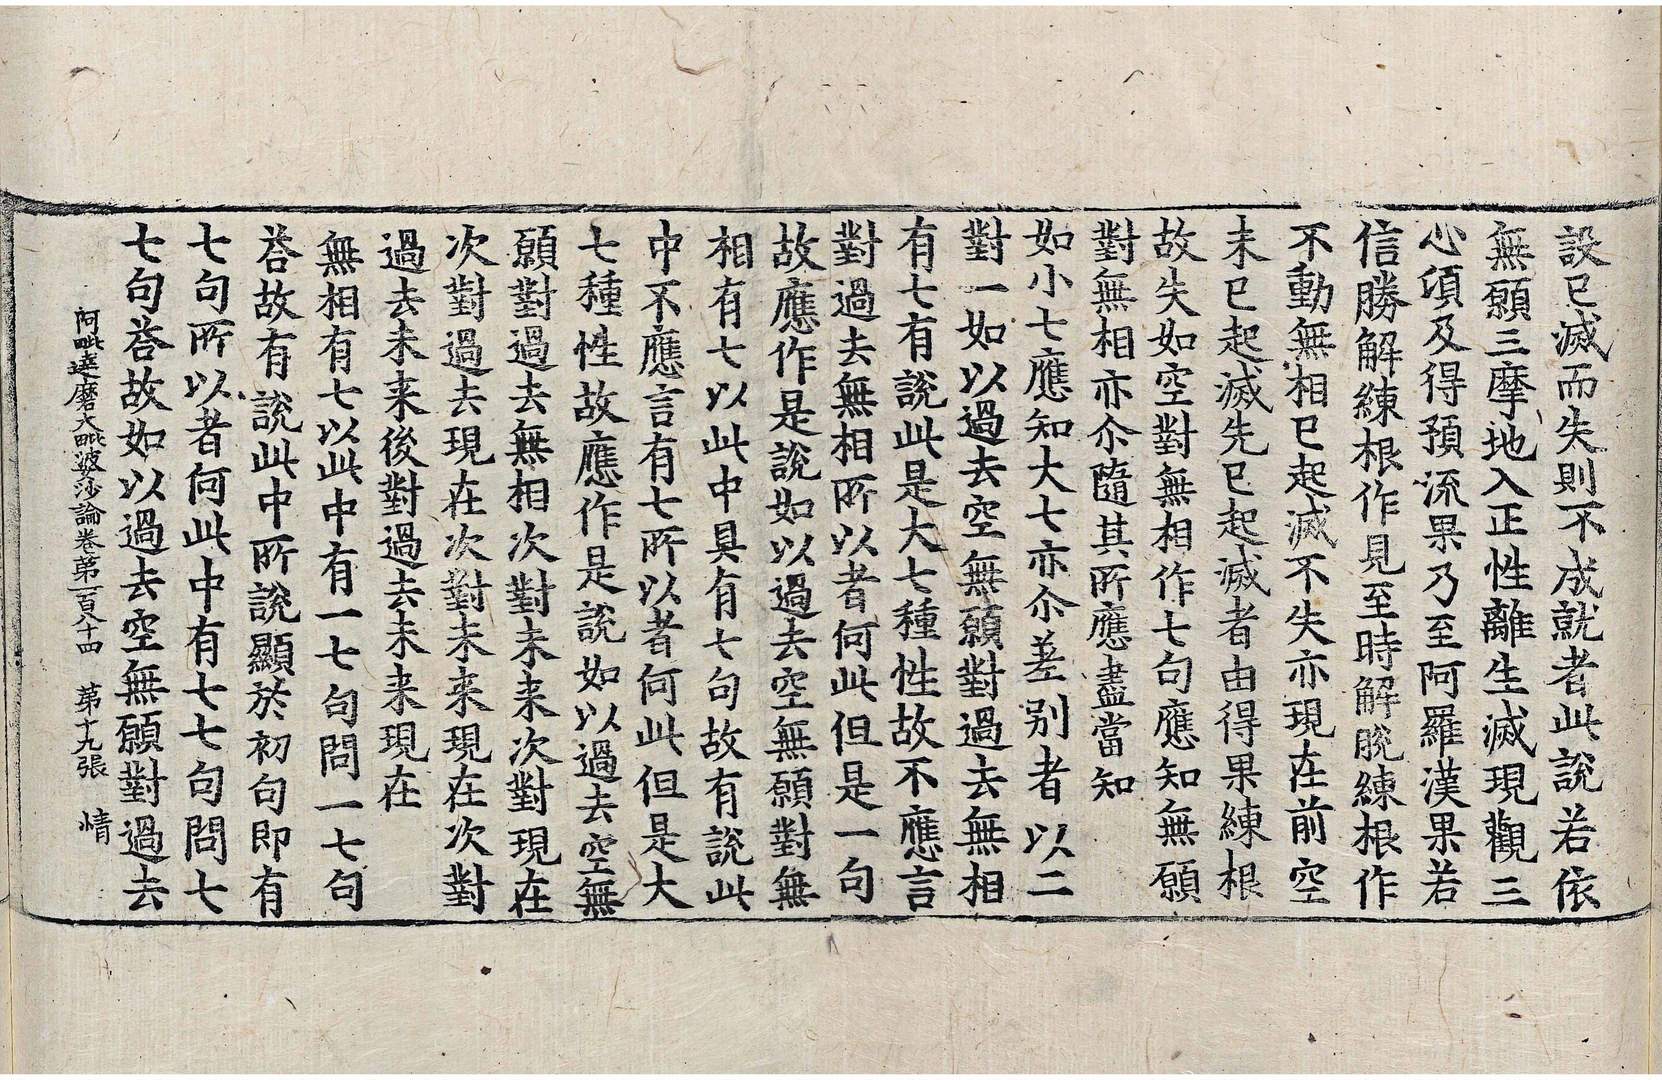 設已滅而失則不成就者此說若依
無願三摩地入正性離生滅現觀三
心湏及得預流果乃至阿羅漢果若
信勝解練根作見至時解脫練根作
不動無相已起滅不失亦現在前空
未已起滅先已起滅者由得果練根
故失如空對無相作七句應知無願
對無相亦尒隨其所應盡當知
如小七應知大七亦尒差别者以二
對一如以過去空無願對過去無相
有七有說此是大七種性故不應言
對過去無相所以者何此但是一句
故應作是說如以過去空無願對無
相有七以此中具有七句故有說此
中不應言有七所以者何此但是大
七種性故應作是說如以過去空無
願對過去無相次對未来次對現在
次對過去現在次對未来現在次對
過去未来後對過去未来現在
無相有七以此中有一七句問一七句
荅故有說此中所說顯於初句即有
七句所以者何此中有七七句問七
七句荅故如以過去空無願對過去
阿毗達磨大毗婆沙論卷第一百八十四　第十九張　情